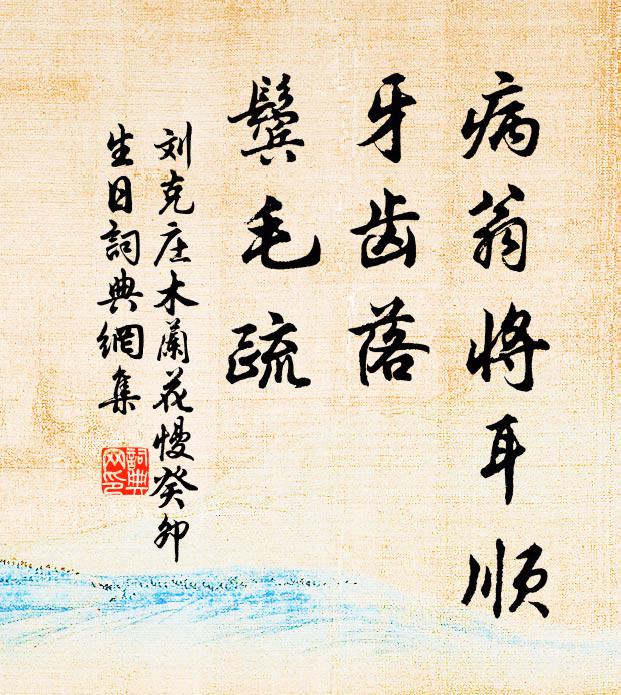 病翁将耳顺
牙齿落
鬓毛疏
刘克庄木蘭花慢癸卯
生日詞典網集
詞典
网印